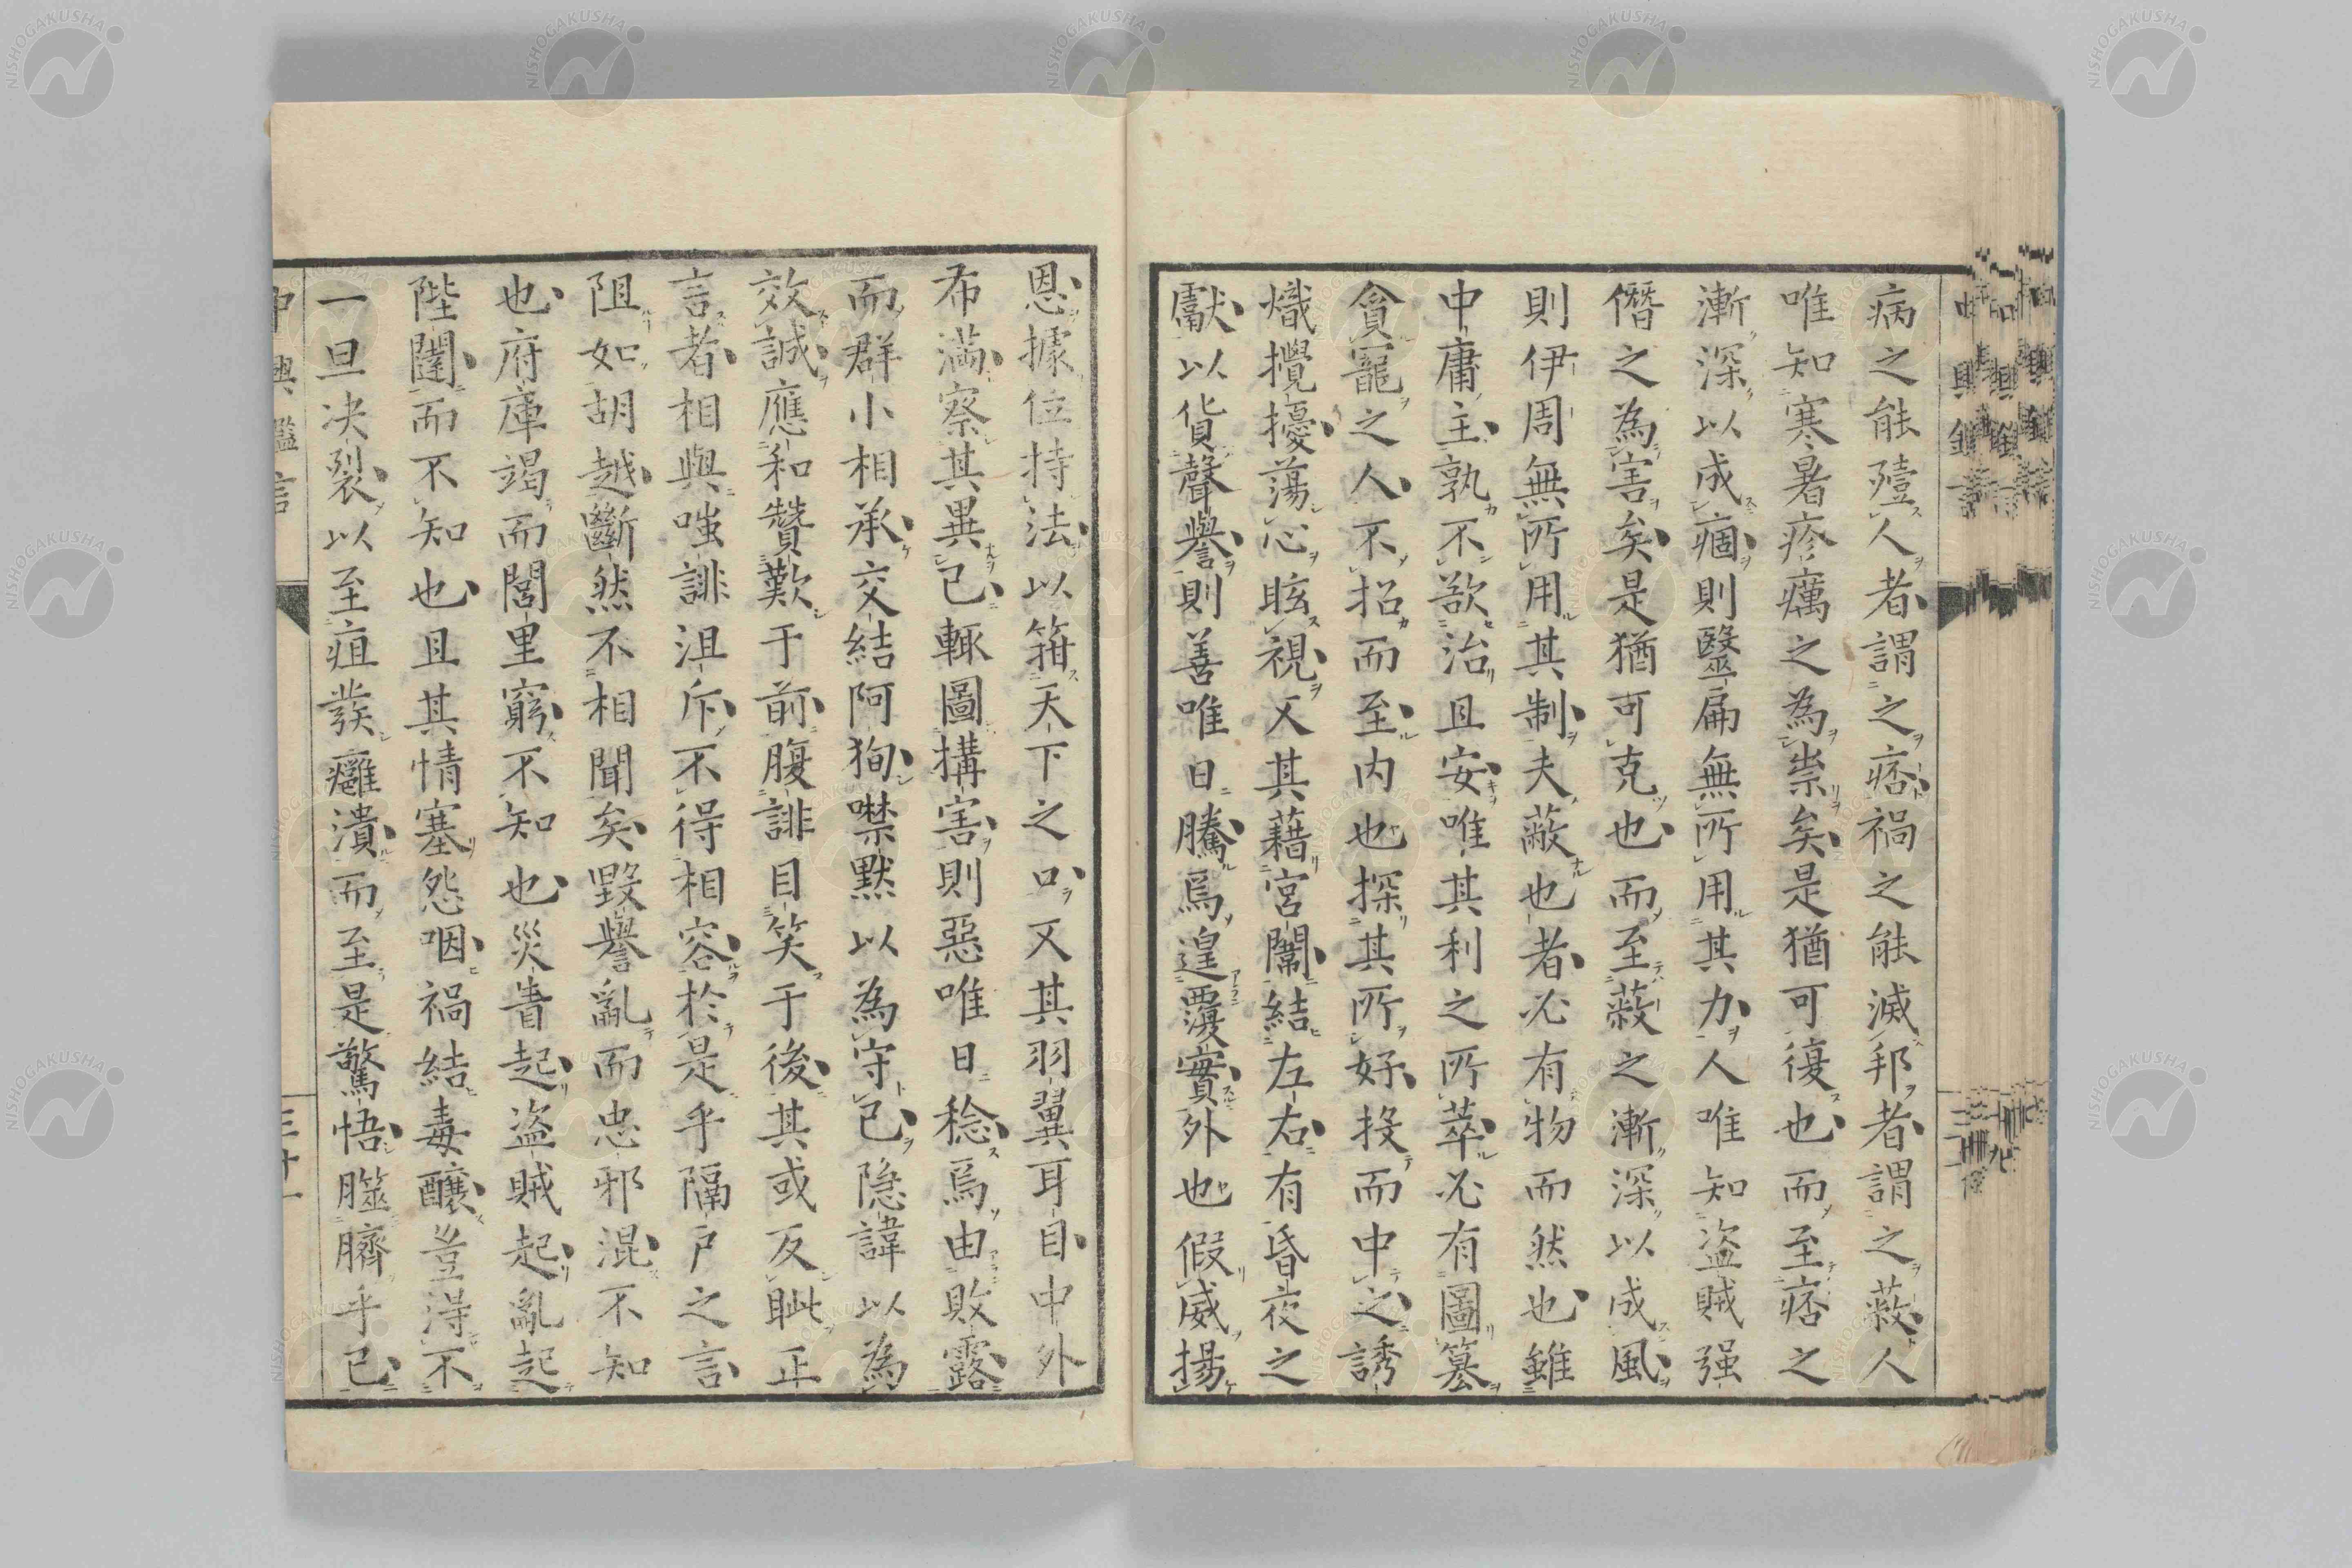 病之能殪人者謂之痞禍之能滅邦者謂之蔽人
唯知寒暑疹癘之為祟矣是猶可復也而至痞之
漸深以成痼則毉扁無所用其力人唯知盜賊强
僭之為害矣是猶可克也而至蔽之漸深以成風
則伊周無所用其制夫蔽也者必有物而然也雖
中庸主孰不欲治且安唯其利之所萃必有圖篡
貪寵之人不招而至内也探其所好投而中之誘
熾攪擾蕩心眩視又其藉宮闈結左右有昏夜之
獻以貨聲譽則善唯日騰焉遑覆實外也假威揚
恩據位持法以箝天下之口又其羽翼耳目中外
布満察其異己輒圖搆害則惡唯日稔焉由敗露
而群小相承交結阿狥噤默以為守己隠諱以為
效誠應和贊歎于前腹誹目笑于後其或反眦正
言者相與嗤誹沮斥不得相容於是乎隔戸之言
阻如胡越斷然不相聞矣毀譽亂而忠邪混不知
也府庫竭而閭里窮不知也災眚起盜賊起亂起
陛闥而不知也且其情塞怨咽禍結毒釀豈得不
一旦决裂以至疽發癰潰而至是驚悟臍乎已
中興鑑言
三十一